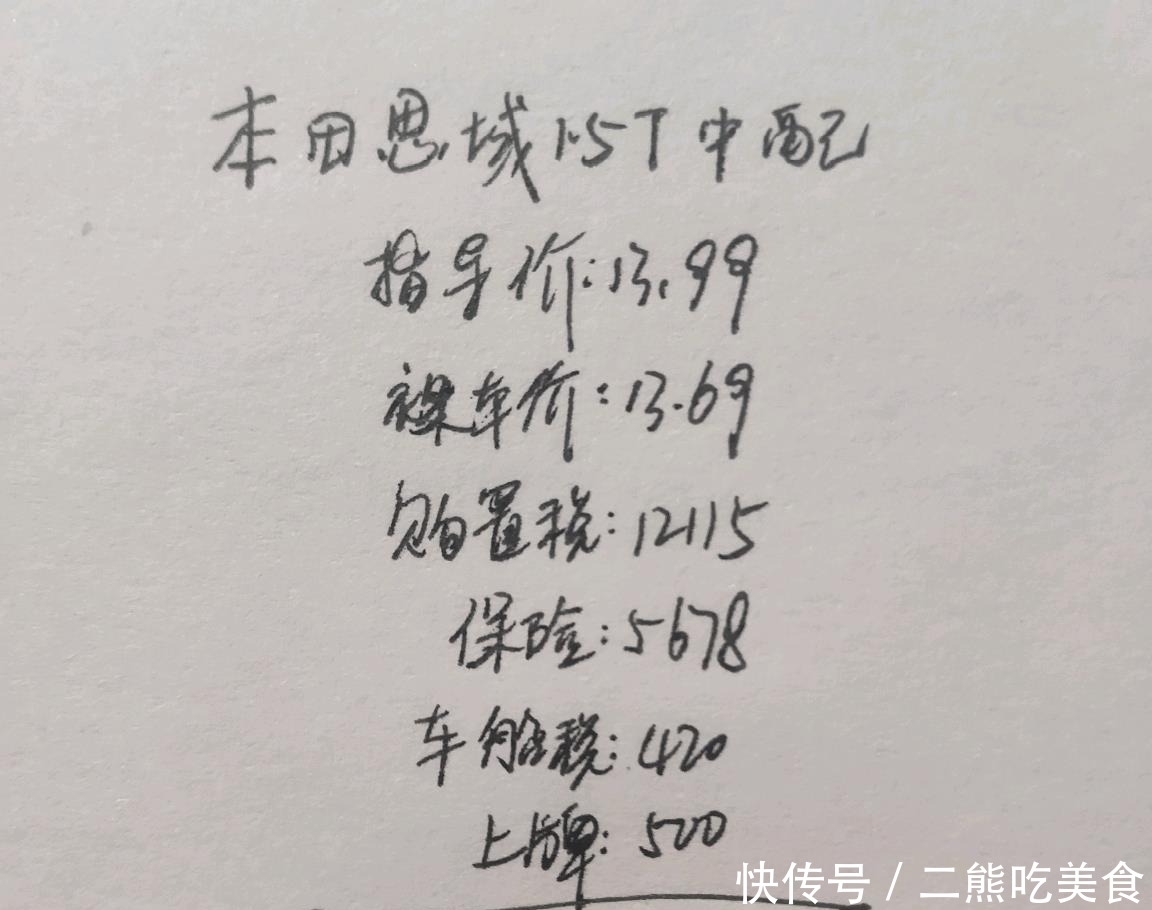 本田思域1.5T中配
指导价:13.99
裸车价:13.69
购置税:12115
保险:5678
车船税:420
上牌:500
快传号/二熊吃美食